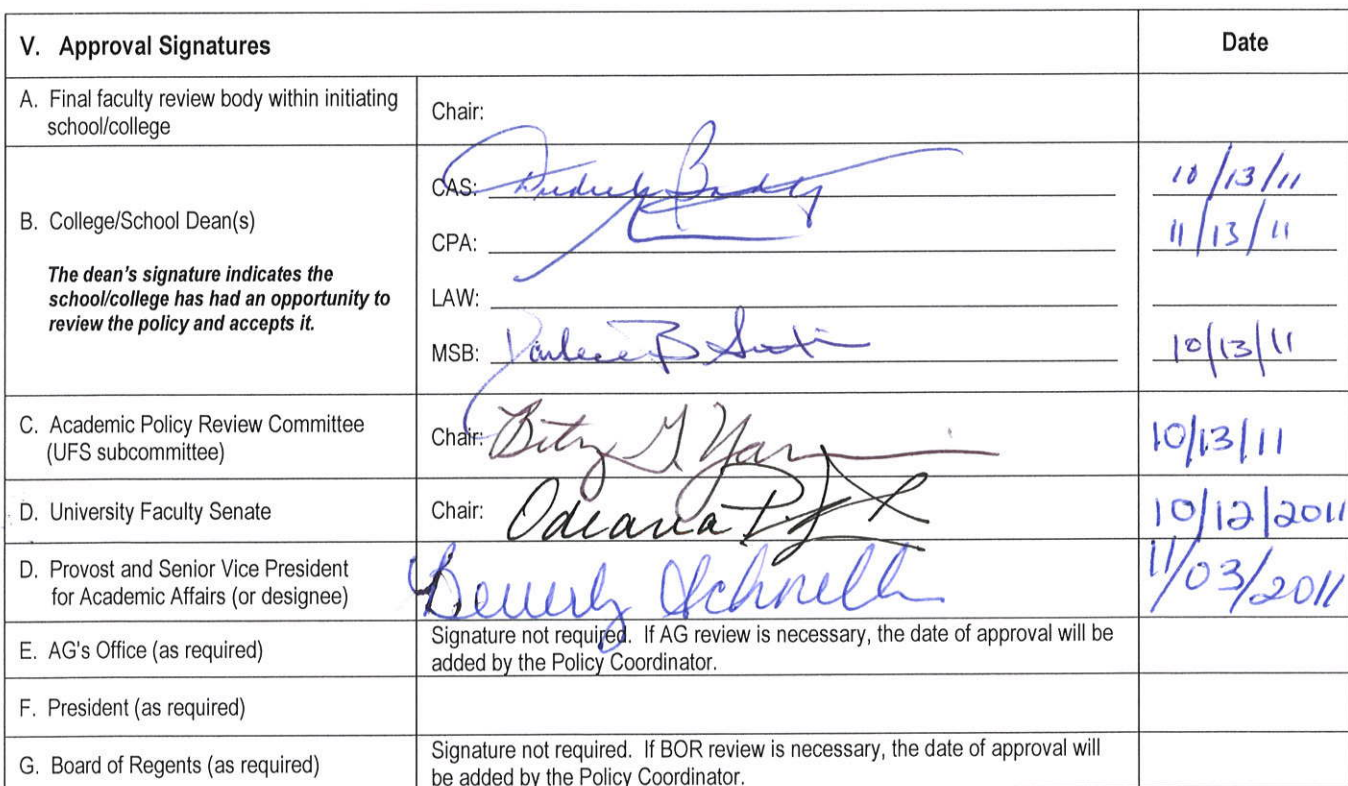 V. Approval Signatures Date
A. Final faculty review body within initiating
school/college
Chair:
B. College/School Dean(s)
The dean's signature indicates the
school/college has had an opportunity to
review the policy and accepts it.
CAS: 10/13/11
CPA: 11/13/11
LAW:
MSB: 10/13/11
C. Academic Policy Review Committee
(UFS subcommittee)
Chair: 10/13/11
D. University Faculty Senate
Chair: 10/12/2011
D. Provost and Senior Vice President
for Academic Affairs (or designee)
Beverly Schnell 11/03/2011
E. AG's Office (as required)
Signature not required. If AG review is necessary, the date of approval will be
added by the Policy Coordinator.
F. President (as required)
G. Board of Regents (as required)
Signature not required. If BOR review is necessary, the date of approval will
be added by the Policy Coordinator.